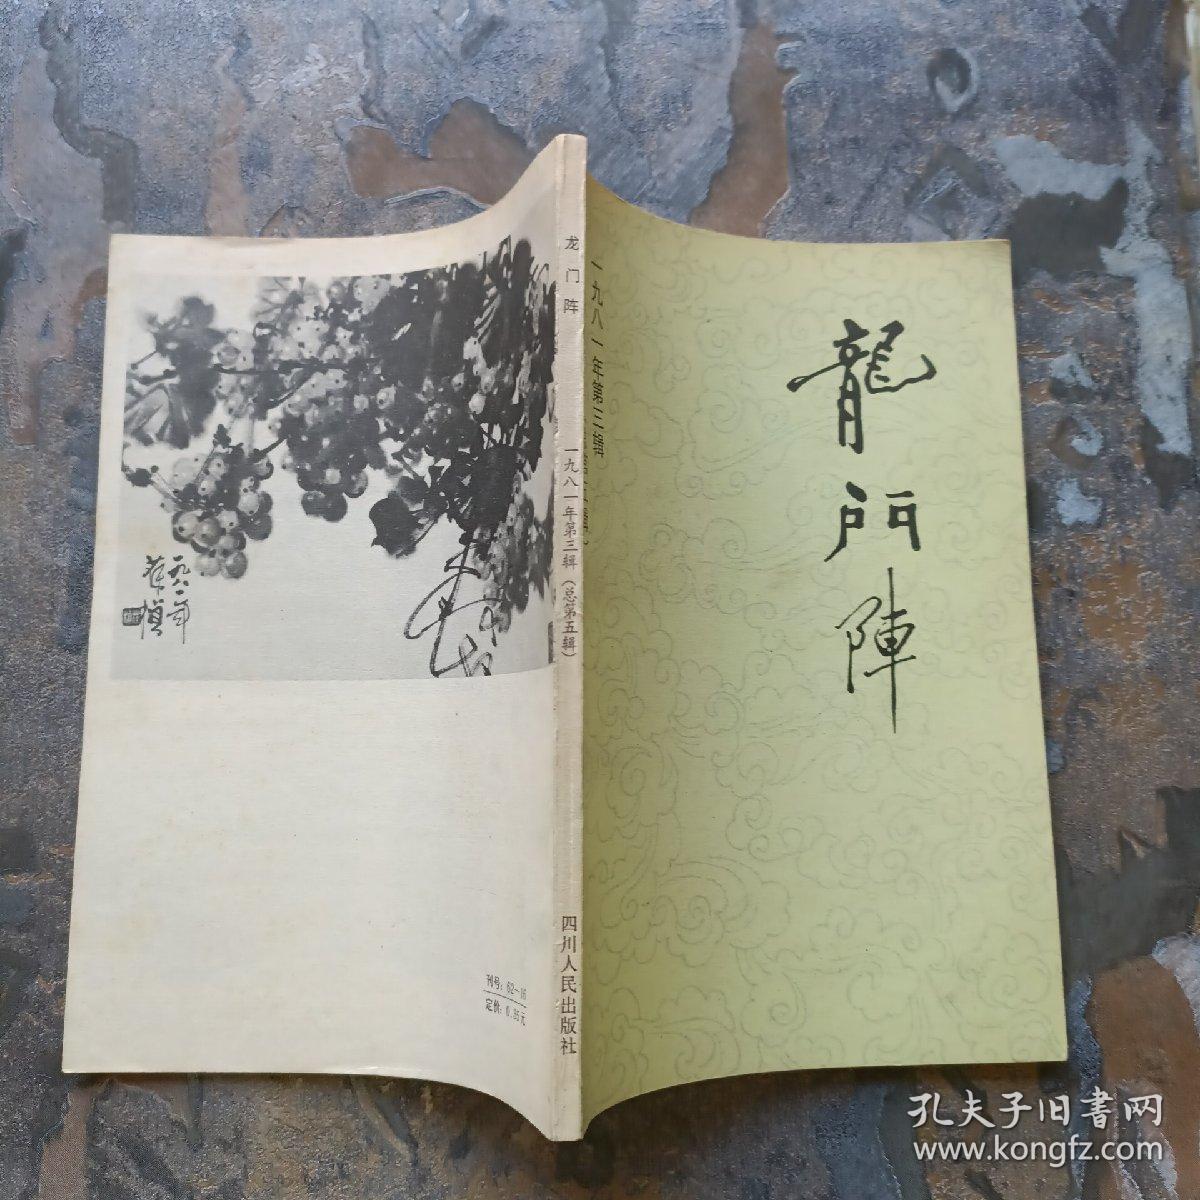 龍門陣
一九八一年第三辑
龙门阵
一九八一年第三辑（总第五辑）
四川人民出版社
一九八一年
刊号：62—16
定价：0.35元
孔夫子旧書网
www.kongfz.com